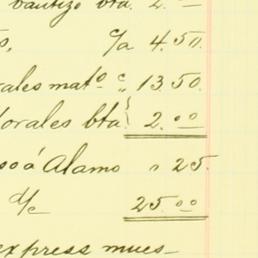 bautizo bta. 2.00
s, c/a 4.50.
rales matº " 13.50.
Morales bta } 2.00
so á Alamo " 25.
d/c 25.00
express mues-